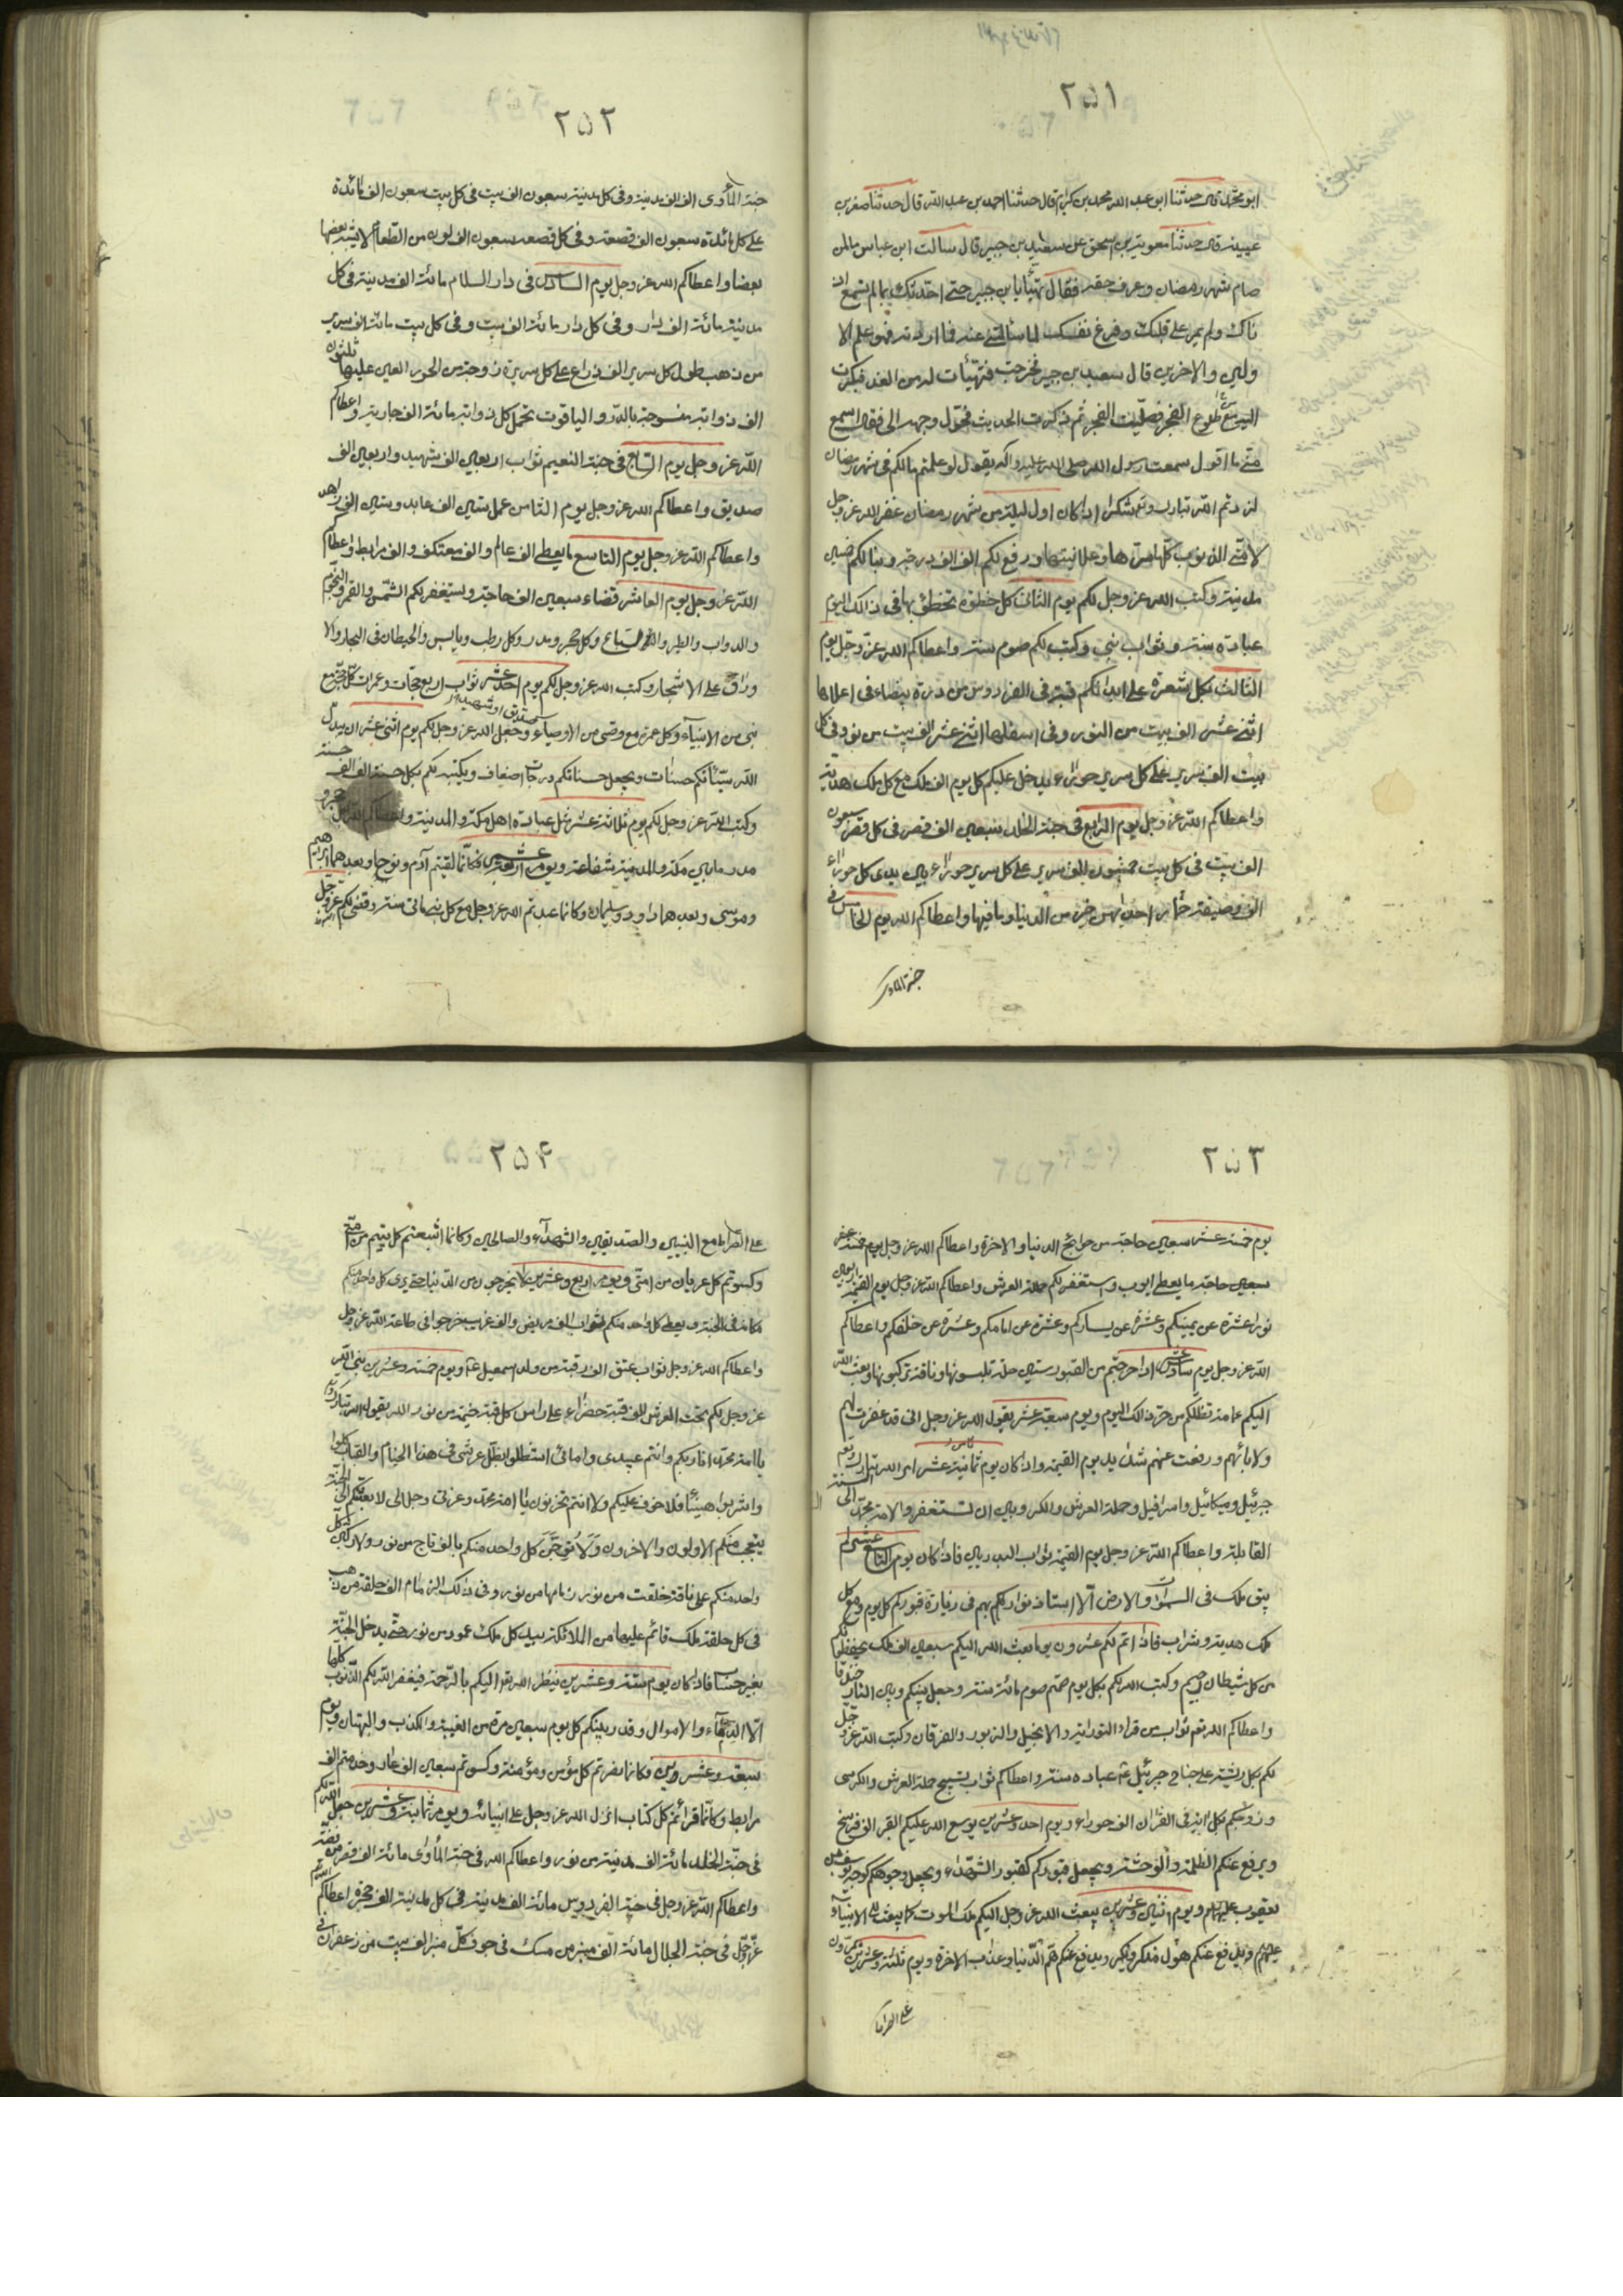 ٢٥١
ابو محمد قال حدثنا ابو عبد الله محمد بن كرام قال حدثنا احمد بن عبد الله قال حدثنا سفر بن
عيينه قال حدثنا معوية بن اسحق عن سعيد بن جبير قال سالت ابن عباس ما لمن
صام شهر رمضان وعرف حقه فقال تهيّأ يا بن جبير حتى احدثك بما لم تسمع اذ
ناك ولم يمر على قلبك وفرغ نفسك لما سألتني عنه فما اردته فهو علم الا
ولين والاخرين قال سعيد بن جبير فخرجت فتهيأت له من الغد فبكرت
اليه مع طلوع الفجر فصليت الفجر ثم ذكرت الحديث فحول وجهه الى فقال اسمع
منى ما اقول سمعت رسول الله صلى الله عليه واله يقول لو علمتم ما لكم فى شهر رمضان
لزدتم الله تبارك وتع شكرا اذا كان اول ليلة من شهر رمضان غفر الله عز وجل
لامتى الذنوب كلها سرها وعلانيتها ورفع لكم الف الف درجة وبنا لكم خمسين
مدينة وكتب الله عز وجل لكم يوم الثانى بكل خطوة تخطؤ بها فى ذالك اليوم
عبادة سنة وثواب نبى وكتب لكم صوم سنة واعطاكم الله عز وجل يوم
الثالث بكل شعرة على ابدانكم قبة فى الفردوس من درة بيضاء فى اعلاها
اثنى عشر الف بيت من النور وفى اسفلها اثنى عشر الف بيت من نور وفى كل
بيت الف سرير على كل سرير حوراء يدخل عليكم كل يوم الف ملك مع كل ملك هدية
واعطاكم الله عز وجل يوم الرابع فى جنة الخلد سبعين الف قصر فى كل قصر سبعون
الف بيت فى كل بيت خمسون الف سرير على كل سرير حوراء بين يدى كل حوراء
الف وصيفة خمار احديهن خير من الدنيا وما فيها واعطاكم الله يوم الخامس فى
جنة المأوى
٢٥٢
جنة المأوى الف الف مدينة وفى كل مدينة سبعون الف بيت فى كل بيت سبعون الف مائدة
على كل مائدة سبعون الف قصعة وفى كل قصعه سبعون الف لون من الطعام لا يشبه بعضها
بعضا واعطاكم الله عز وجل يوم السادس فى دار السلام مائة الف مدينة فى كل
مدينة مائة الف دار وفى كل دار مائة الف بيت وفى كل بيت مائة الف سرير
من ذهب طول كل سرير الف ذراع على كل سرير زوجة من الحور العين عليها ثلثون
الف ذوابة منسوجة بالدر والياقوت تحمل كل ذوابة مائة الف جارية واعطاكم
الله عز وجل يوم السابع فى جنة النعيم ثواب اربعين الف شهيد واربعين الف
صديق واعطاكم الله عز وجل يوم الثامن عمل ستين الف عابد وستين الف زاهد
واعطاكم الله عز وجل يوم التاسع ما يعطى الف عالم والف معتكف والف مرابط واعطاكم
الله عز وجل يوم العاشر قضاء سبعين الف حاجة ويستغفر لكم الشمس والقمر والنجوم
والدواب والطير والسباع وكل حجر ومدر وكل رطب ويابس والحيطان فى البحار والا
وراق على الاشجار وكتب الله عز وجل لكم يوم احد عشر ثواب اربع حجات وعمرات كل حجة مع
نبى من الانبياء وكل عمرة مع وصى من الاوصياء صديق او شهيد وجعل الله عز وجل لكم يوم اثنى عشر ان يبدل
الله سيئاتكم حسنات ويجعل حسناتكم درجات اضعاف ويكتب لكم بكل حسنة الف الف حسنة
وكتب الله عز وجل لكم يوم ثلاثة عشر مثل عبادة اهل مكة والمدينة واعطاكم الله بكل حجر و
مدر ما بين مكة والمدينة شفاعة ويوم اربعة عشر فكأنما لقيتم آدم ونوحا وبعدهما ابراهيم
وموسى وبعدهما داود وسليمان وكانما عبدتم الله عز وجل مع كل نبى مائتى سنة وقضى لكم عز وجل
٢٥٣
يوم خمسة عشر سبعين حاجة من حوائج الدنيا والاخرة واعطاكم الله عز وجل يوم خمسة عشر
سبعين حاجة ما يعطى ايوب واستغفر لكم حملة العرش واعطاكم الله عز وجل يوم القيمة اربعين
نورا عشرة عن يمينكم وعشرة عن يساركم وعشرة عن امامكم وعشرة عن خلفكم واعطاكم
الله عز وجل يوم سادس عشر اذا خرجتم من القبور ستين حلة تلبسونها وناقة تركبونها وبعث الله
اليكم غمامة تظلكم من حر ذالك اليوم ويوم سبعة عشر يقول الله عز وجل انى قد غفرت لهم
ولابائهم ورفعت عنهم شدائد يوم القيمة واذا كان يوم ثمانية عشر امر الله تبارك وتع
جبرئيل وميكائيل واسرافيل وحملة العرش والكروبين ان تستغفروا لامة محمد الى السنة
القابلة واعطاكم الله عز وجل يوم القيمة ثواب البدريين فاذا كان يوم التاسع عشر لم
يبق ملك فى السموات والارض الا استاذنوا ربكم بهم فى زيارة قبوركم كل يوم ومع كل
ملك هدية وشراب فاذا تم لكم عشرون يوما بعث الله اليكم سبعين الف ملك يحفظونكم
من كل شيطان رجيم وكتب الله لكم بكل يوم صمتم صوم مائة سنة وجعل بينكم وبين النار خندقا
واعطاكم الله تعم ثواب من قراء التوراة والانجيل والزبور والفرقان وكتب الله عز وجل
لكم بكل ريشة على جناح جبرئيل ع عبادة سنة واعطاكم ثواب تسبيح حملة العرش والكرسى
وزوجكم بكل اية فى القران الف حوراء ويوم احد وعشرين يوسع الله عليكم القبر الف فرسخ
ويرفع عنكم الظلمة والوحشة ويجعل قبوركم كقبور الشهداء ويجعل وجوهكم كوجه يوسف بن
يعقوب عليهم ويوم اثنين وعشرين يبعث الله عز وجل اليكم ملك الموت كما يبعث الى الانبياء
عليهم ويدفع عنكم هول منكر ونكير ويدفع عنكم هم الدنيا وعذاب الاخرة ويوم ثلثة وعشرين تمرون
على الصراط
٢٥٤
على الصراط مع النبيين والصديقين والشهداء والصالحين وكانما اشبعتم كل يتيم من امتى
وكسوتم كل عريان من امتى ويوم اربع وعشرين لا يخرجون من الدنيا حتى يرى كل واحد منكم
مكانه فى الجنة ويعطى كل واحد منكم ثواب الف مريض والف غريب خرجوا فى طاعة الله عز وجل
واعطاكم الله عز وجل ثواب عتق الف رقبة من ولد اسمعيل ع ويوم خمسة وعشرين بنى الله
عز وجل لكم تحت العرش الف قبة خضراء على راس كل قبة خيمة من نور الله يقول الله تبارك وتع
يا امة محمد انا ربكم وانتم عبيدى وامائى استظلوا بظل عرشى فى هذا الخيام والقباب كلوا
واشربوا هنيئا فلا خوف عليكم ولا انتم تحزنون يا امة محمد وعزتى وجلالى لابعثنكم الى الجنة
يتعجب منكم الاولون والاخرون ولاتوجن كل واحد منكم بالف تاج من نور ولاركبن كل
واحد منكم على ناقة خلقت من نور زمامها من نور وفى ذالك الزمام الف حلقة من ذهب
فى كل حلقة ملك قائم عليها من الملائكة بيد كل ملك عمود من نور حتى يدخل الجنة
بغير حساب فاذا كان يوم ستة وعشرين ينظر الله تعوا اليكم بالرحمة فيغفر الله لكم الذنوب كلها
الا الدماء والاموال وقدر بينكم كل يوم سبعين مرة من الغيبة والكذب والبهتان ويوم
سبعة وعشرين وكانما نصرتم كل مؤمن ومؤمنة وكسوتم سبعين الف عار وخدمتم الف
مرابط وكانما قرأتم كل كتاب انزل الله عز وجل على انبيائه ويوم ثمانية وعشرين جعل الله لكم
فى جنة الخلد مائة الف مدينة من نور واعطاكم الله فى جنة المأوى مائة الف قصر من فضة
واعطاكم الله عز وجل فى جنة الفردوس مائة الف مدينة فى كل مدينة الف حجرة اعطاكم الله
عز وجل فى جنة الجلال مائة الف منبر من مسك فى جوف كل منبر الف بيت من زعفران فى